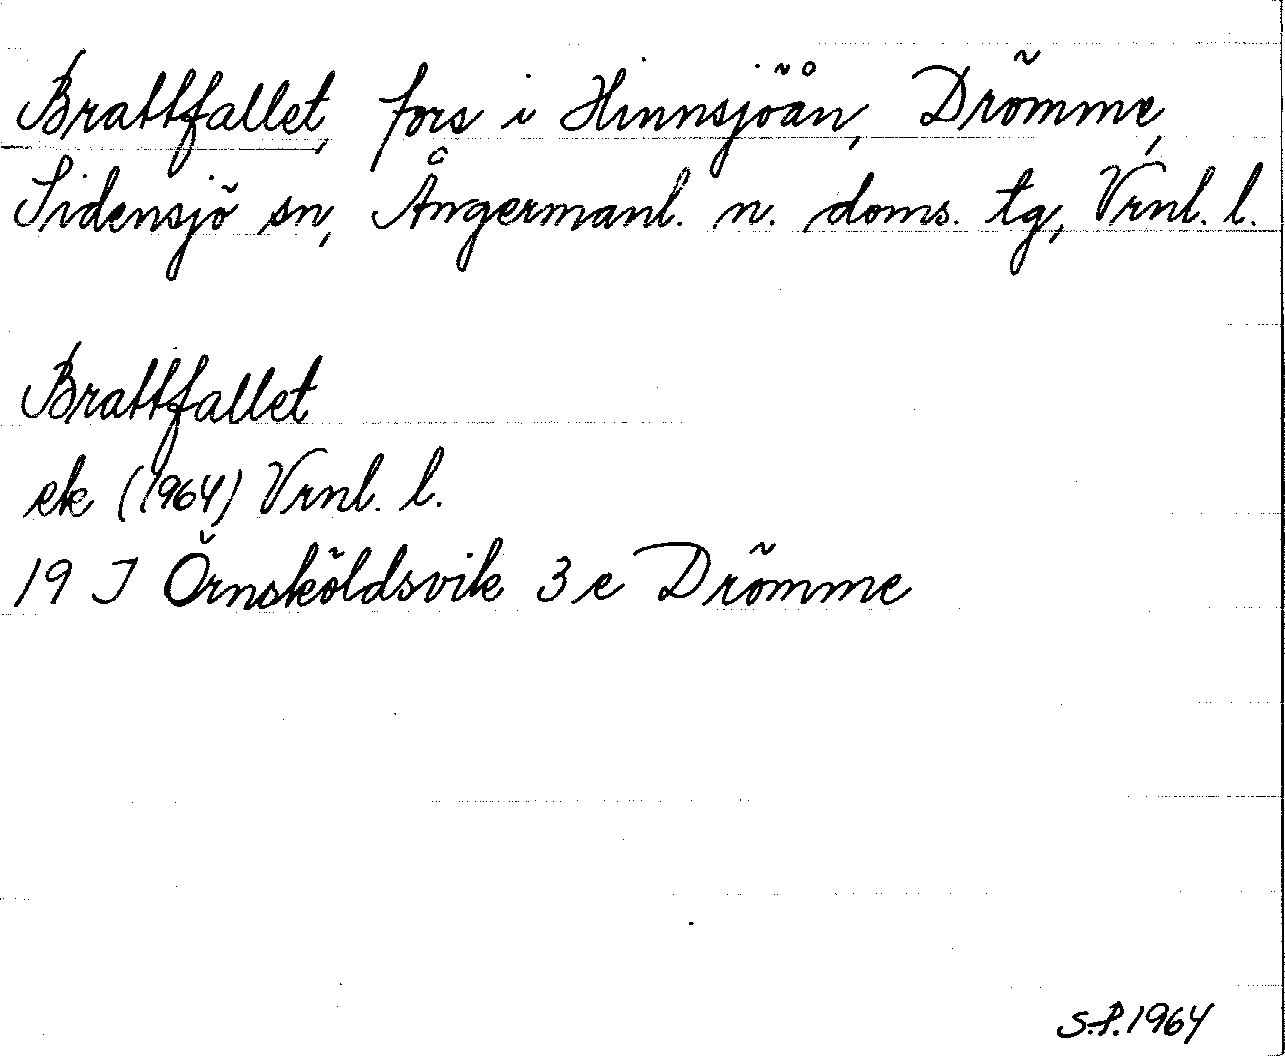 Brattfallet, fors i Hinnsjöån, Drömme,
Sidensjö sn, Ångermanl. n. doms. tg, Vrnl. l.
Brattfallet
ek (1964) Vrnl. l.
19 J Örnsköldsvik 3 e Drömme
S.P. 1964